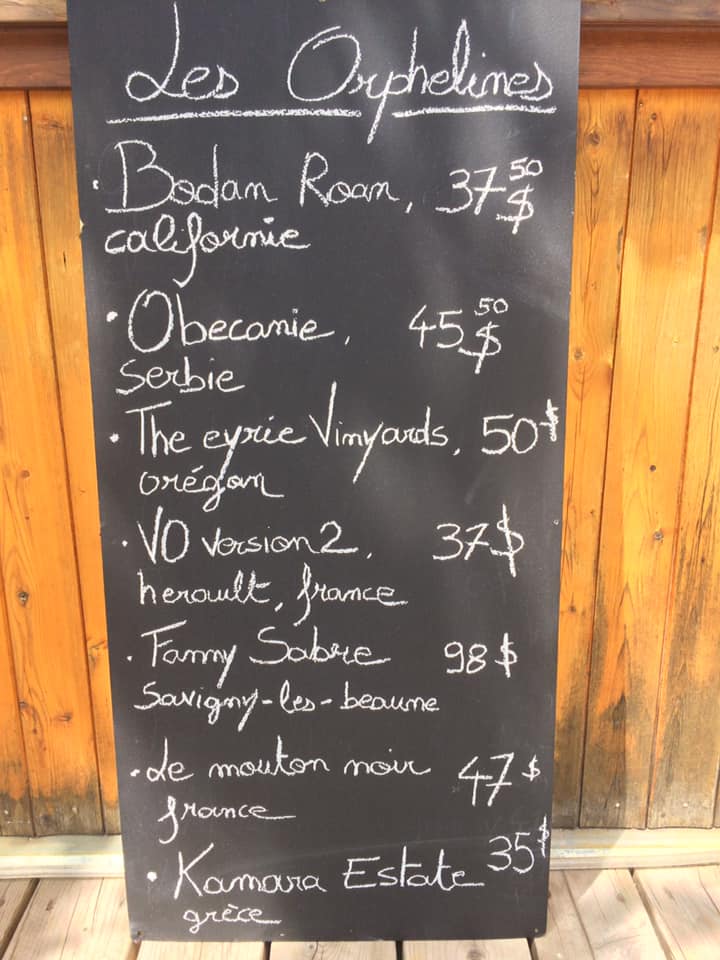 Les Orphelines
• Bodan Roan, 37 50 $
californie
• Obecanie, 45 50 $
Serbie
• The eyrie Vinyards, 50 $
orégan
• VO version 2, 37 $
herault, france
• Fanny Sabre 98 $
Savigny-les-beaune
• Le mouton noir 47 $
france
• Kamara Estate 35 $
grèce